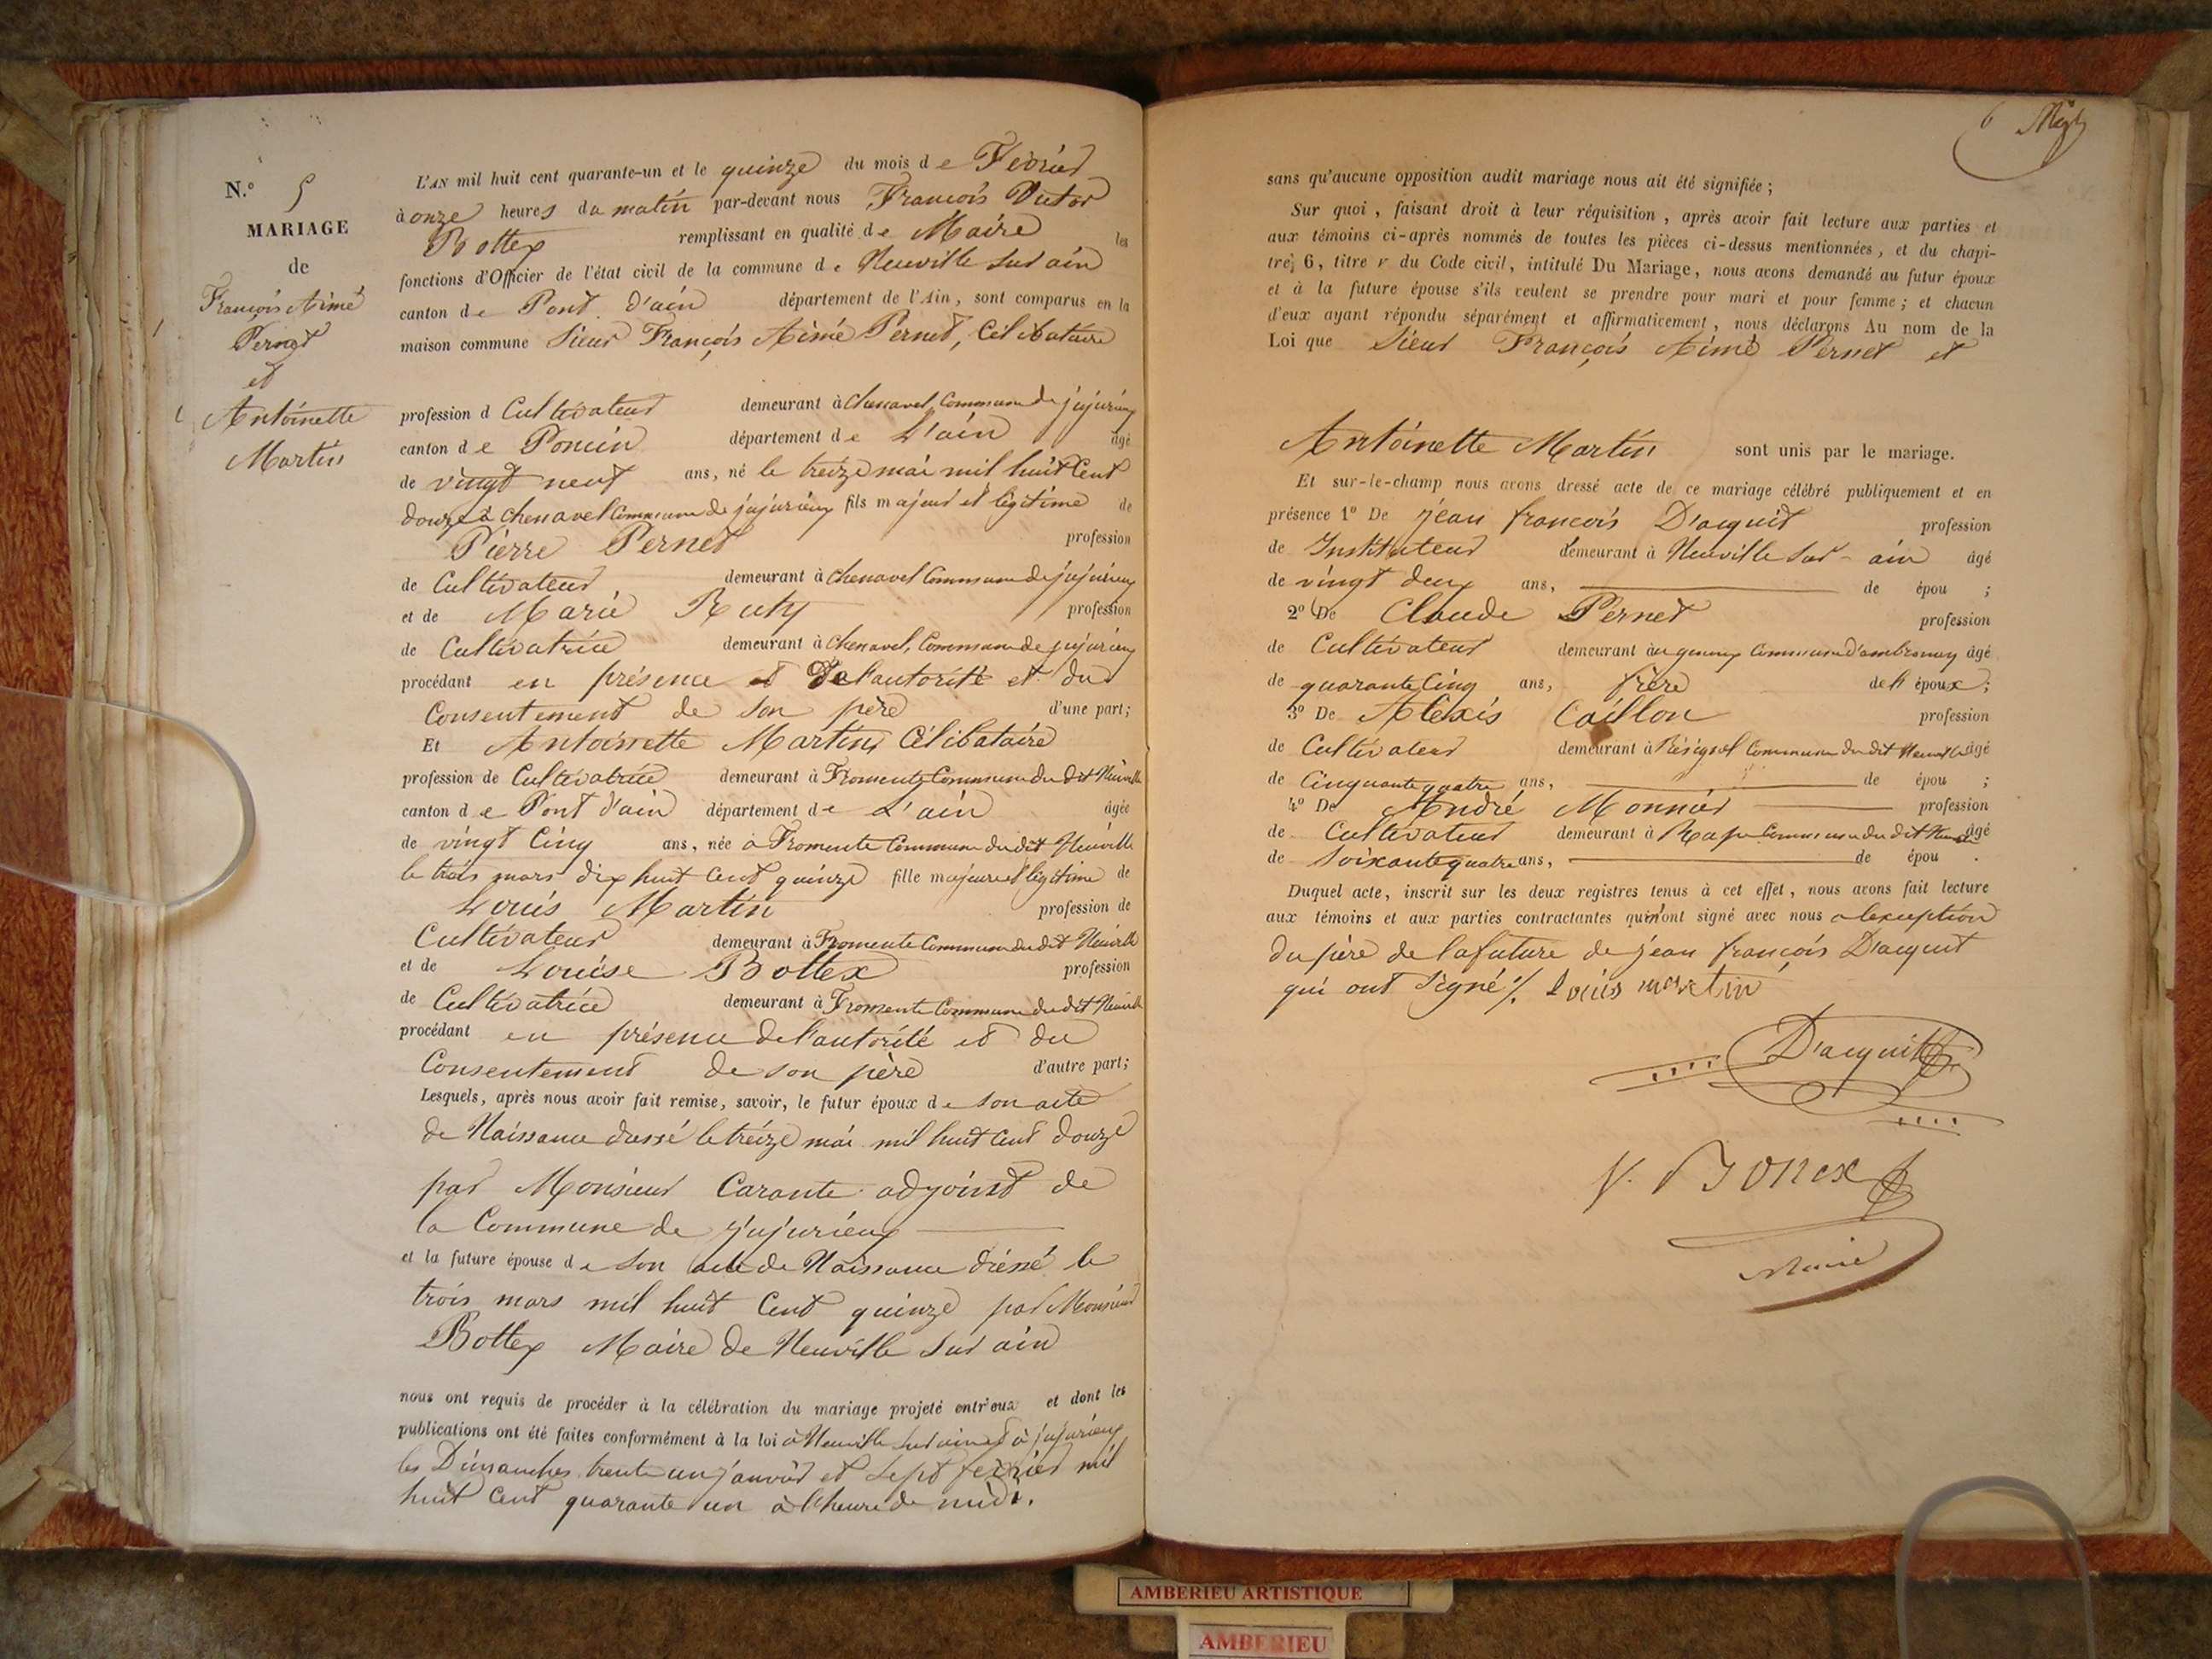 N.° 5
MARIAGE
de
François Aimé
Pernet
et
Antoinette
Martin
L'AN mil huit cent quarante-un et le quinze du mois de Fevrier
à onze heures du matin par-devant nous François Victor
Bottex remplissant en qualité de Maire les
fonctions d'Officier de l'état civil de la commune de Neuville sur ain
canton de Pont d'ain département de l'Ain, sont comparus en la
maison commune Sieur François Aimé Pernet, Célibataire
profession d Cultivateur demeurant à Chenavel, Commune de jujurieux
canton de Poncin département de L'ain âgé
de vingt neuf ans, né le treize mai mil huit Cent
douze à chenavel Commune de jujurieux fils majeur et légitime de
Pierre Pernet profession
de Cultivateur demeurant à chenavel Commune de jujurieux
et de Marie Ruty profession
de Cultivatrice demeurant à chenavel, Commune de jujurieux
procédant en présence et De l'autorité et du
Consentement de son père d'une part;
Et Antoinette Martin Célibataire
profession de Cultivatrice demeurant à Fromente Commune du dit Neuville
canton de Pont d'ain département de L'ain âgée
de vingt Cinq ans, née à Fromente Commune du dit Neuville
le trois mars dix huit Cent quinze fille majeure et légitime de
Louis Martin profession de
Cultivateur demeurant à Fromente Commune du dit Neuville
et de Louise Bottex profession
de Cultivatrice demeurant à Fromente Commune du dit Neuville
procédant en présence de l'autorité et du
Consentement de son père d'autre part;
Lesquels, après nous avoir fait remise, savoir, le futur époux de son acte
de Naissance dressé le treize mai mil huit Cent douze
par Monsieur Carante adjoint de
la Commune de jujurieux
et la future épouse de son acte de Naissance dressé le
trois mars mil huit Cent quinze par Monsieur
Bottex Maire de Neuville sur ain
nous ont requis de procéder à la célébration du mariage projeté entr'eux et dont les
publications ont été faites conformément à la loi à Neuville sur ain et à jujurieux
les Dimanches trente un janvier et sept fevrier mil
huit Cent quarante un à l'heure de midi.
6
sans qu'aucune opposition audit mariage nous ait été signifiée;
Sur quoi, faisant droit à leur réquisition, après avoir fait lecture aux parties et
aux témoins ci-après nommés de toutes les pièces ci-dessus mentionnées, et du chapi-
tre 6, titre v du Code civil, intitulé Du Mariage, nous avons demandé au futur époux
et à la future épouse s'ils veulent se prendre pour mari et pour femme; et chacun
d'eux ayant répondu séparément et affirmativement, nous déclarons Au nom de la
Loi que Sieur François Aimé Pernet et
Antoinette Martin sont unis par le mariage.
Et sur-le-champ nous avons dressé acte de ce mariage célébré publiquement et en
présence 1° De jean francois D'acquit profession
de Instituteur demeurant à Neuville sur-ain âgé
de vingt deux ans, de épou ;
2° De Claude Pernet profession
de Cultivateur demeurant à Commune d'ambronay âgé
de quarante Cinq ans, frère de l'époux;
3° De Alexis Caillon profession
de Cultivateur demeurant à Commune du dit Neuville âgé
de Cinquante quatre ans, de épou ;
4° De André Monnier profession
de Cultivateur demeurant à Commune du dit Neuville âgé
de Soixante quatre ans, de épou .
Duquel acte, inscrit sur les deux registres tenus à cet effet, nous avons fait lecture
aux témoins et aux parties contractantes qui n'ont signé avec nous a lexception
du père de la future de jean françois D'acquit
qui ont signé ./. Louis martin
D'acquit
V. Bottex
Maire
AMBERIEU ARTISTIQUE
AMBERIEU